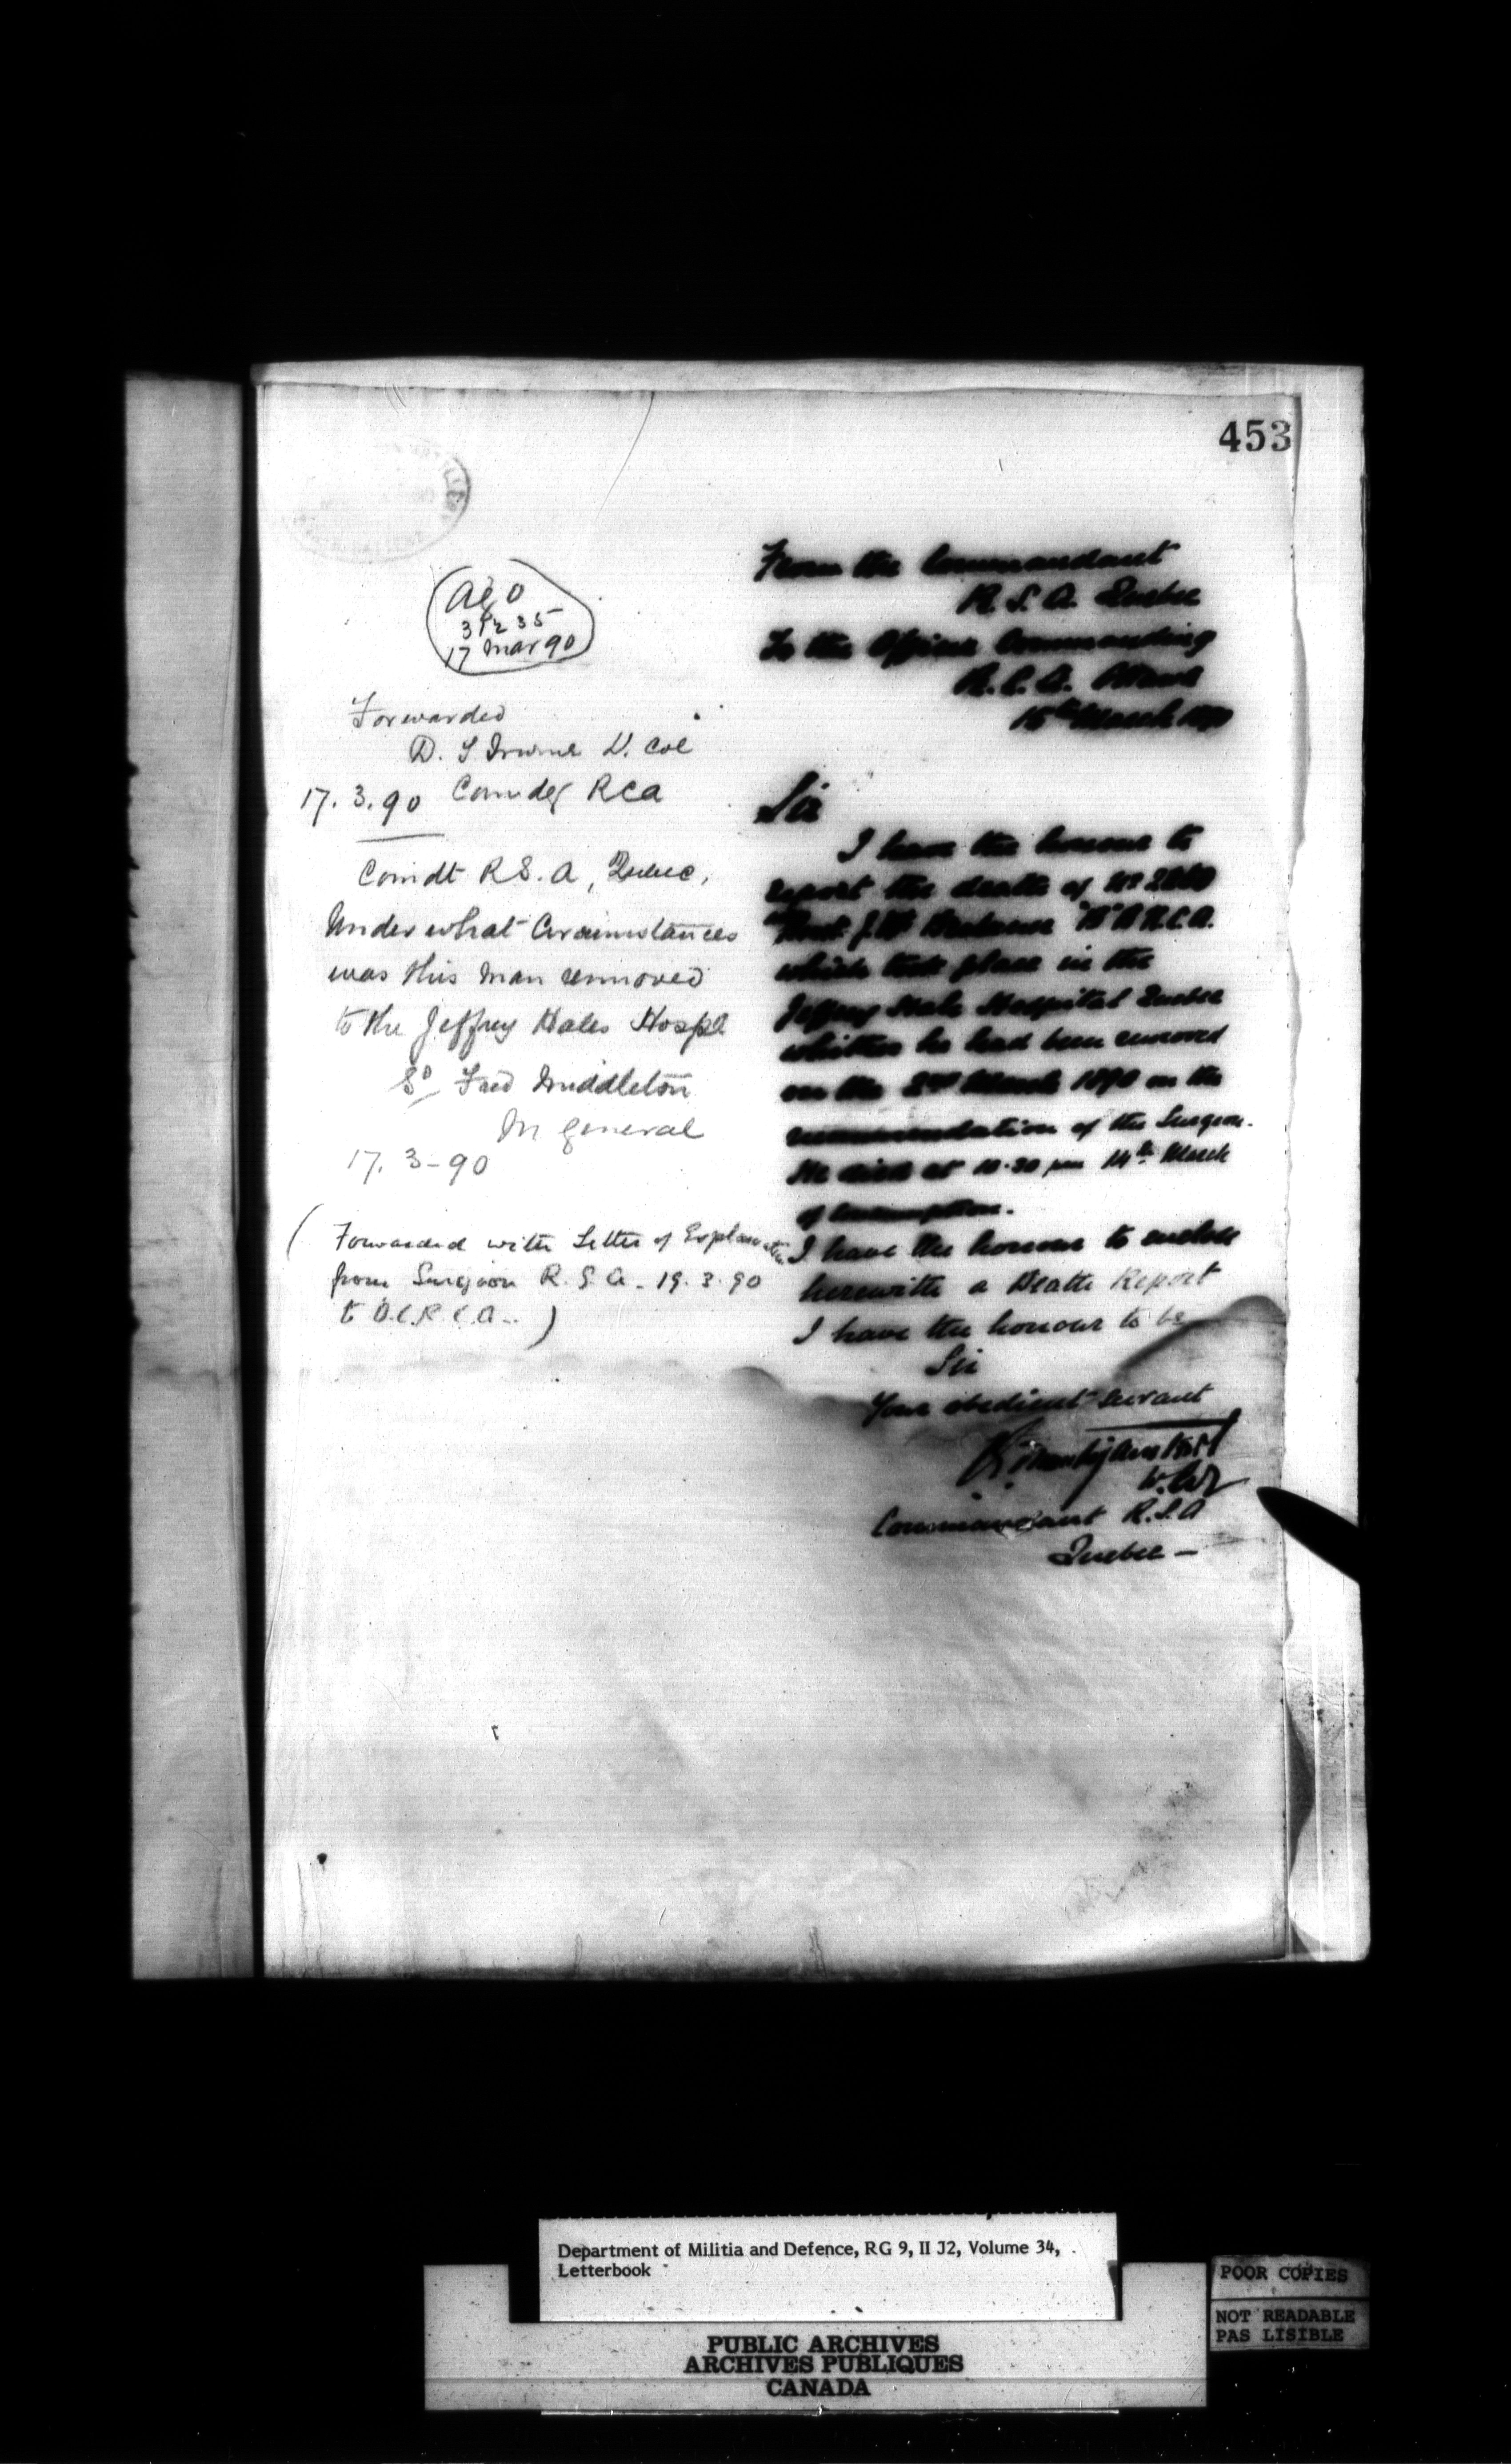 453
From the Commandant
R. S. A. Quebec
To the Officer Commanding
R. C. A. Ottawa
15th March 1890
Sir
I have the honour to
report the death of No 2260
J. W. "B" B R.C.A.
which took place in the
Jeffrey Hale Hospital Quebec
whither he had been removed
on the 2nd March 1890 on the
recommendation of the Surgeon.
He died at 10.30 pm 14th March
of Consumption.
I have the honour to enclose
herewith a Death Report
I have the honour to be
Sir
Your obedient servant
Commandant R.S.A
Quebec -
17 Mar 90
Forwarded
D. T Irwin Lt. Col
17.3.90 Comdg RCA
Comdt R S. A, Quebec,
Under what Circumstances
was this man removed
to the Jeffrey Hales Hospl
Sd/ Fred Middleton
M General
17. 3 - 90
(Forwarded with Letter of Explanation
from Surgeon R. S. A. 19.3.90
to O.C.R.C.A. -)
Department of Militia and Defence, RG 9, II J2, Volume 34,
Letterbook
POOR COPIES
NOT READABLE
PAS LISIBLE
PUBLIC ARCHIVES
ARCHIVES PUBLIQUES
CANADA